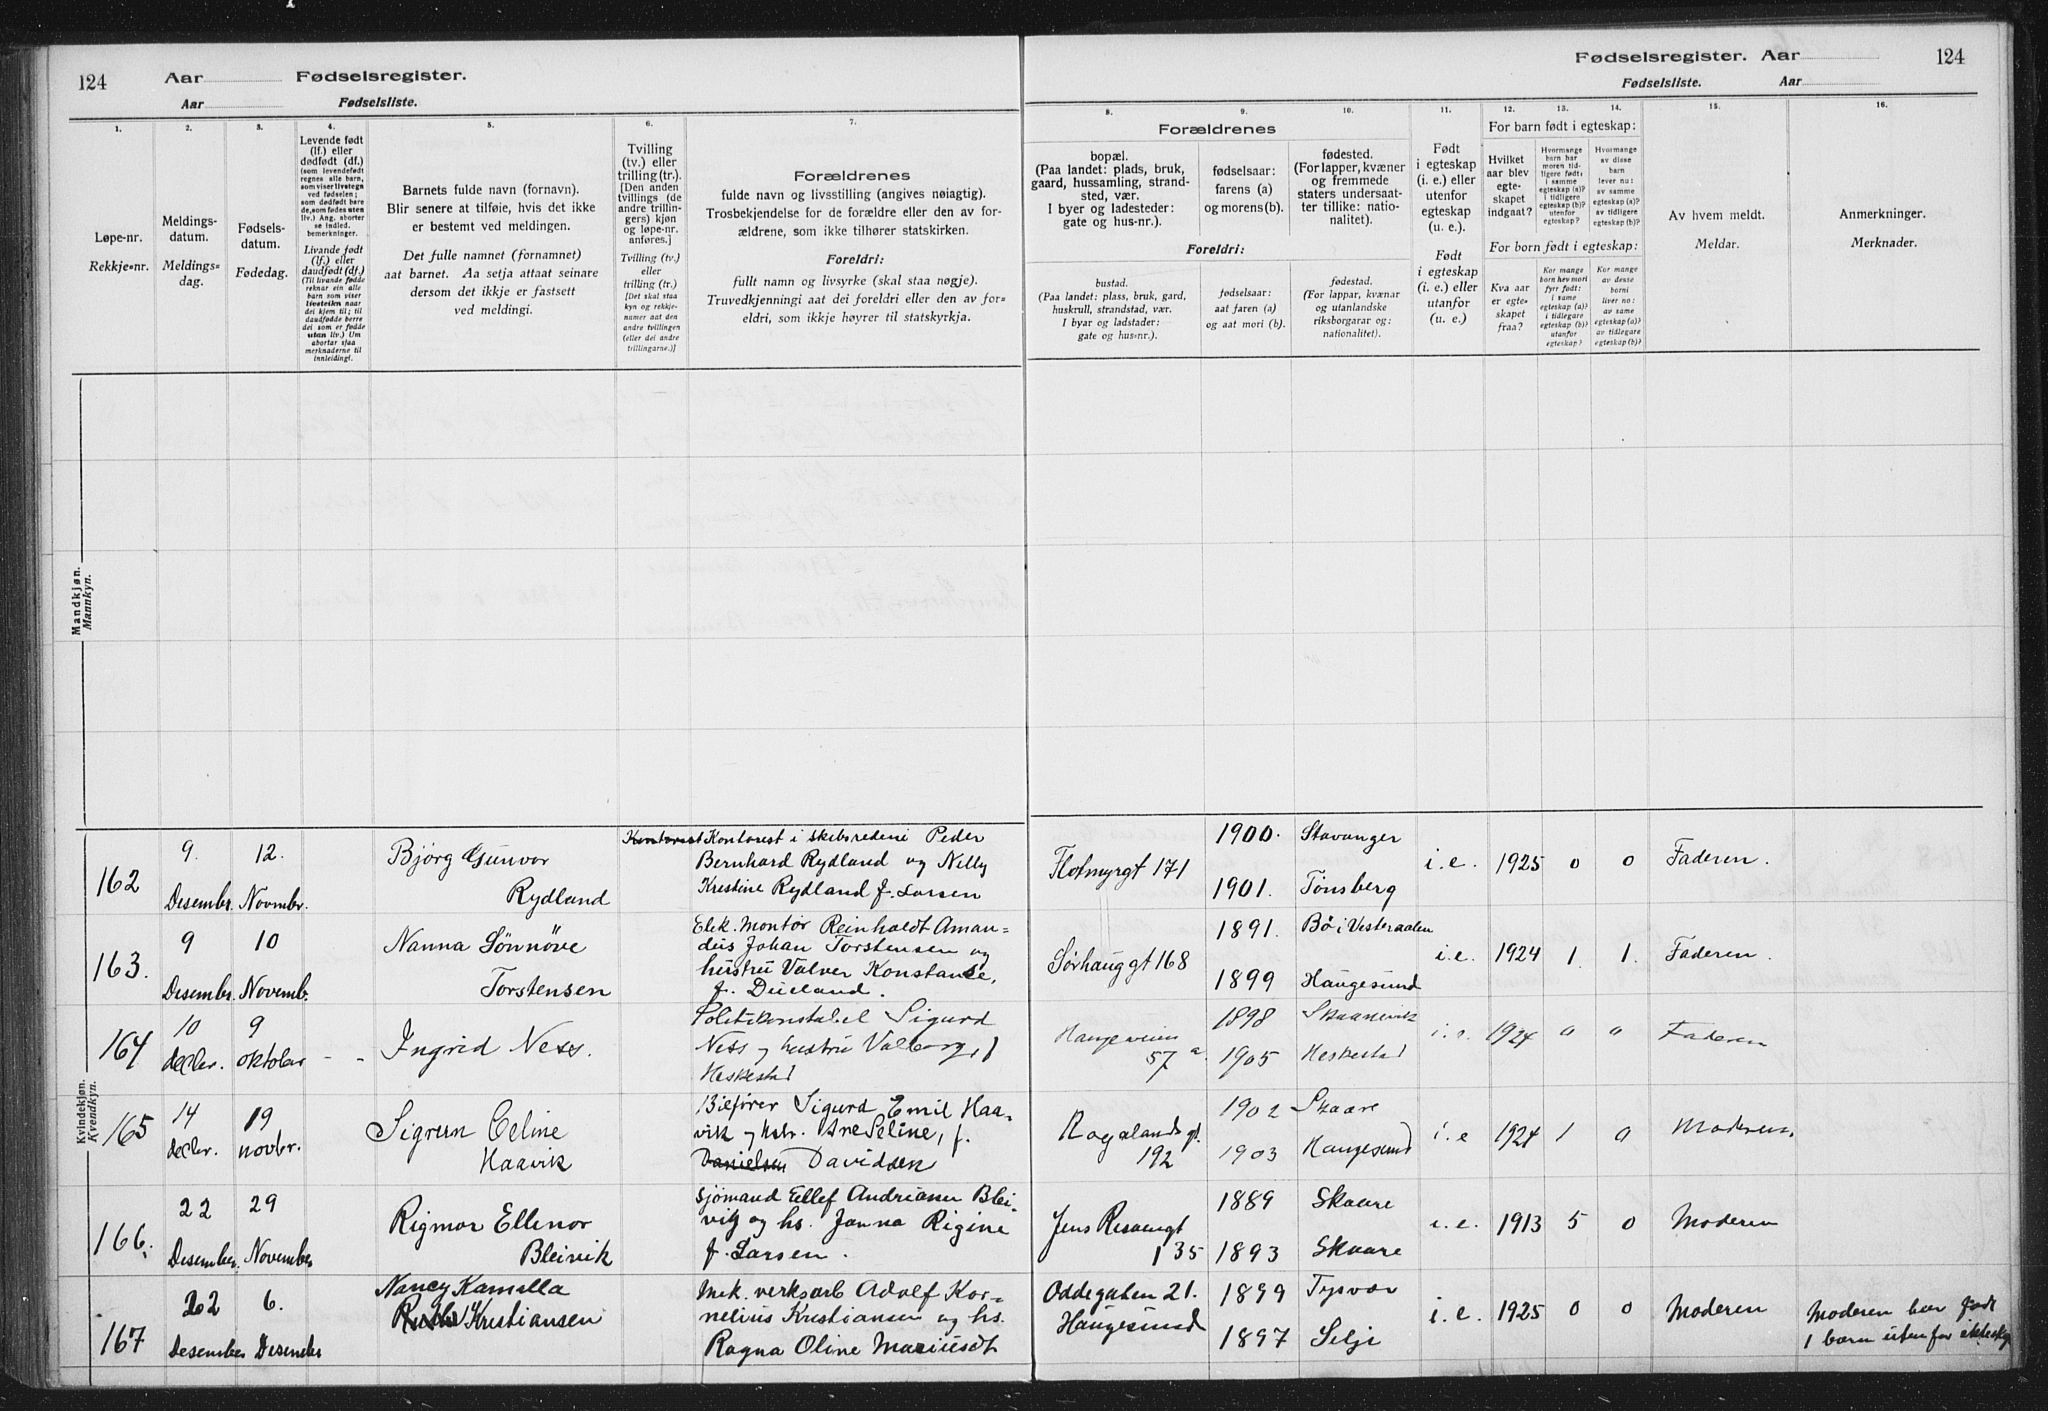 124
Aar
Fødselsregister.
Aar
Fødselsliste.
Fødselsregister. Aar
124
Fødselsliste.
Aar
1.
2.
3.
4.
5.
6.
7.
8.
9.
10.
11.
12.
13.
14.
15.
16.
Løpe-nr.
Rekkje-nr.
Meldings-
datum.
Meldings-
dag.
Fødsels-
datum.
Fødedag.
Levende født
(lf.) eller
dødfødt (df.)
(som levendefødt
regnes alle barn,
som viser livstegn
ved fødselen;
som dødfødt bare
de, som fødes uten
liv.) Ang. aborter
se indled.
bemerkninger.
Livande født
(lf.) eller
daudfødt (df.)
(Til livande fødde
reknar ein alle
barn som viser
livsteikn naar
dei kjem til; til
daudfødde berre
dei som er fødde
utan liv.) Um
abortar sjaa
merknaderne til
innleiding!.
Barnets fulde navn (fornavn).
Blir senere at tilføie, hvis det ikke
er bestemt ved meldingen.
Det fulle namnet (fornamnet)
aat barnet. Aa setja attaat seinare
dersom det ikkje er fastsett
ved meldingi.
Tvilling
(tv.) eller
trilling (tr.)
[Den anden
tvillings (de
andre trillin-
gers) kjøn
og løpe-nr.
anføres.]
Tvilling (tv.)
eller
trilling (tr.)
[Det skal staa
kyn og rekkje-
numer aat den
andre tvillingen
(eller dei andre
trillingarne.)]
Forældrenes
fulde navn og livsstilling (angives nøiagtig).
Trosbekjendelse for de forældre eller den av for-
ældrene, som ikke tilhører statskirken.
Foreldri:
fullt namn og livsyrke (skal staa nøgje).
Truvedkjenningi aat dei foreldri eller den av for-
eldri, som ikkje høyrer til statskyrkja.
Forældrenes
bopæl.
(Paa landet: plads, bruk,
gaard, hussamling, strand-
sted, vær.
I byer og ladesteder:
gate og hus-nr.).
fødselsaar:
farens (a)
og morens (b).
fødested.
(For lapper, kvæner
og fremmede
staters undersaat-
ter tillike: natio-
nalitet).
Foreldri:
bustad.
(Paa landet: plass, bruk, gard,
huskrull, strandstad, vær.
I byar og ladstader:
gate og hus-nr.).
fødselsaar:
aat faren (a)
og aat mori (b).
fødestad.
(For lappar, kvænar
og utanlandske
riksborgarar og:
nationalitet).
Født
i egteskap
(i. e.) eller
utenfor
egteskap
(u. e.).
Født
i egteskap
(i. e.) eller
utanfor
(u. e.).
For barn født i egteskap:
Hvilket
aar blev
egte-
skapet
indgaat?
Hvormange
barn har
moren tid-
ligere født:
i samme
egteskap (a)?
i tidligere
egteskap (b)?
utenfor
egteskap?
Hvormange
av disse
lever nu:
av samme
egteskap (a)?
av tidligere
egteskap (b)?
For born født i egteskap:
Kva aar
er egte-
skapet
fraa?
Kor mange
born hev mori
fyrr født:
i same
egteskap (a)?
i tidlegare
egteskap (b)?
utanfor
egteskap?
Kor mange
av desse
borni
liver no:
av same
egteskap (a)?
av tidlegare
egteskap (b)?
Av hvem meldt.
Meldar.
Anmerkninger.
Merknader.
Mandkjøn.
Mannkyn.
Kvindekjøn.
Kvendkyn.
162
9.
Desembr.
12.
Novmbr.
Bjørg Gunvor
Rydland
Kontorist Kontorist i skibsrederi Peder
Bernhard Rydland og Nelly
Kristine Rydland f. Larsen
Flotmyrgt 171
1900. Stavanger
1901. Tønsberg
i.e. 1925 0 0 Faderen.
163.
9
Desembr.
10
Novemb.
Nanna Sønnøve
Torstensen
Elek. Montør Reinholdt Aman-
deus Johan Torstensen og
hustru Valver Konstanse,
f. Dueland.
Sørhauggt 168
1891. Bø i Vesteraalen
1899 Haugesund
i.e. 1924 1. 1. Faderen.
164
10
decbr.
9
oktober
- -
Ingrid Ness.
Politikonstabel Sigurd
Ness og hustru Valborg, f
Heskestad
Haugeveien
57 a.
1898 Skaanevik
1905 Heskestad
i.e. 1924 0 0 Faderen
165
14
decbr.
19
novbr.
Sigrun Celine
Haavik
Bilfører Sigurd Emil Haa-
vik og hstr. Are Seline, f.
Danielsen Davidsen
Rogalands gt.
192
1902 Skaare
1903 Haugesund
i.e 1924 1 0 Moderen.
166.
22
Desember
29
November
Rigmor Ellenor
Bleivik
Sjømand Ellef Andreas Blei-
vik og hs. Janna Rigine
f. Larsen.
Jens Risøengt
135
1889 Skaare
1893 Skaare
i.e. 1913 5 0 Moderen
167
22
Desember
6.
Desember
Nancy Kamilla
Ruth Kristiansen
Mek. verksarb Adolf Kor-
nelius Kristiansen og hs.
Ragna Oline Mariusdt
Oddegaten 21.
Haugesund
1899 Tysvær
1897 Selje
i.e. 1925 0 0 Moderen
Moderen har født
1 barn utenfor ekteskap